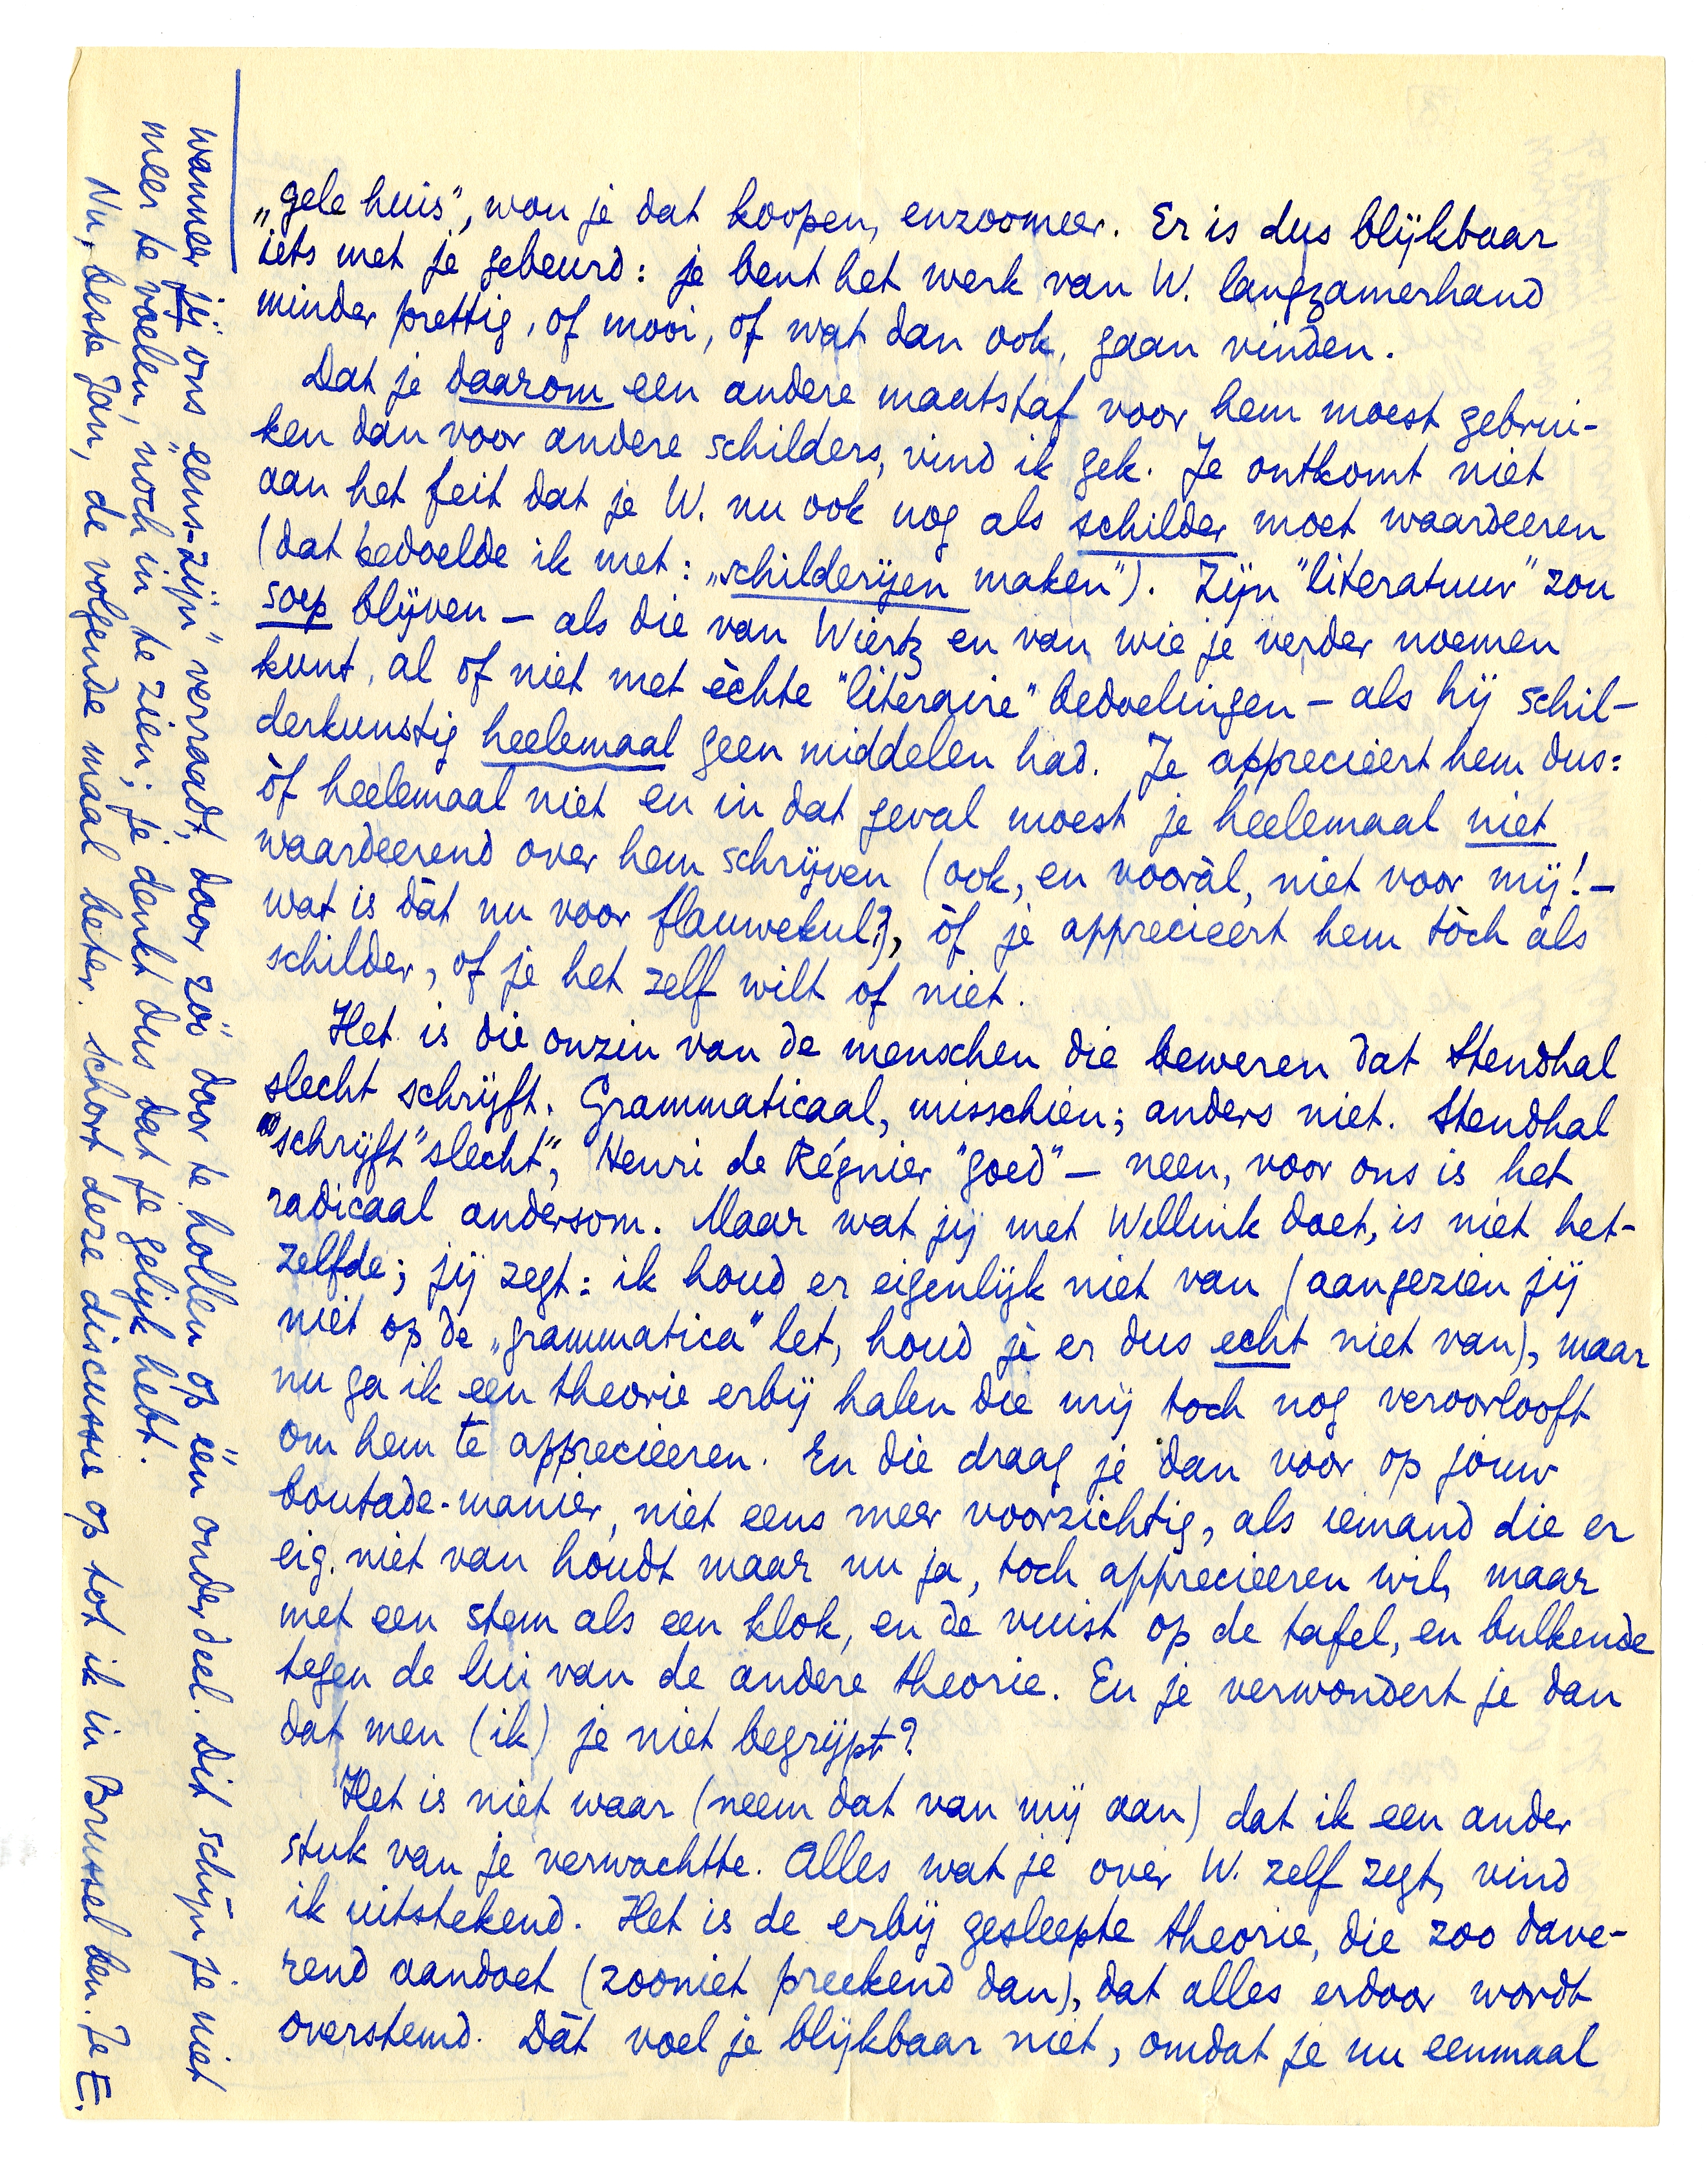 „gele huis", wou je dat koopen, enzoomeer. Er is dus blijkbaar
iets met je gebeurd: je bent het werk van W. langzamerhand
minder prettig, of mooi, of wat dan ook, gaan vinden.
Dat je daarom een andere maatstaf voor hem moest gebrui-
ken dan voor andere schilders, vind ik gek. Je ontkomt niet
aan het feit dat je W. nu ook nog als schilder moet waardeeren
(dat bedoelde ik met: „schilderijen maken"). Zijn "literatuur" zou
soep blijven — als die van Wiertz en van wie je verder noemen
kunt, al of niet met èchte "literaire" bedoelingen — als hij schil-
derkunstig heelemaal geen middelen had. Je apprecieert hem dus:
òf heelemaal niet en in dat geval moest je heelemaal niet
waardeerend over hem schrijven (ook, en vooràl, niet voor mij! —
wat is dàt nu voor flauwekul?), òf je apprecieert hem tòch àls
schilder, of je het zelf wilt of niet.
Het is die onzin van de menschen die beweren dat Stendhal
slecht schrijft. Grammaticaal, misschien; anders niet. Stendhal
"schrijft "slecht", Henri de Régnier "goed" — neen, voor ons is het
radicaal andersom. Maar wat jij met Willink doet, is niet het-
zelfde; jij zegt: ik houd er eigenlijk niet van (aangezien jij
niet op de „grammatica" let, houd je er dus echt niet van), maar
nu ga ik een theorie erbij halen die mij toch nog veroorlooft
om hem te apprecieeren. En die draag je dan voor op jouw
boutade-manier, niet eens meer voorzichtig, als iemand die er
eig. niet van houdt maar nu ja, toch apprecieeren wil, maar
met een stem als een klok, en de vuist op de tafel, en bulkende
tegen de lui van de andere theorie. En je verwondert je dan
dat men (ik) je niet begrijpt?
Het is niet waar (neem dat van mij aan) dat ik een ander
stuk van je verwachtte. Alles wat je over W. zelf zegt, vind
ik uitstekend. Het is de erbij gesleepte theorie, die zoo dave-
rend aandoet (zooniet preekend dan), dat alles erdoor wordt
overstemd. Dàt voel je blijkbaar niet, omdat je nu eenmaal
wanneer jij ons „eens-zijn" verraadt, door zóó door te hollen op één onderdeel. Dit schijn je niet
meer te voelen, noch in te zien; je denkt dus dat je gelijk hebt.
Nu, beste Jan, de volgende maal beter. Schort deze discussie op tot ik in Brussel ben. Je E.